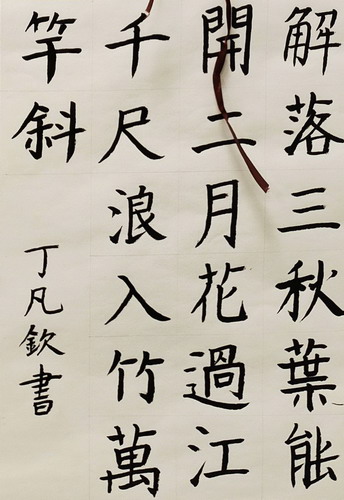 解落三秋葉能
開二月花過江
千尺浪入竹萬
竿斜
丁凡欽書